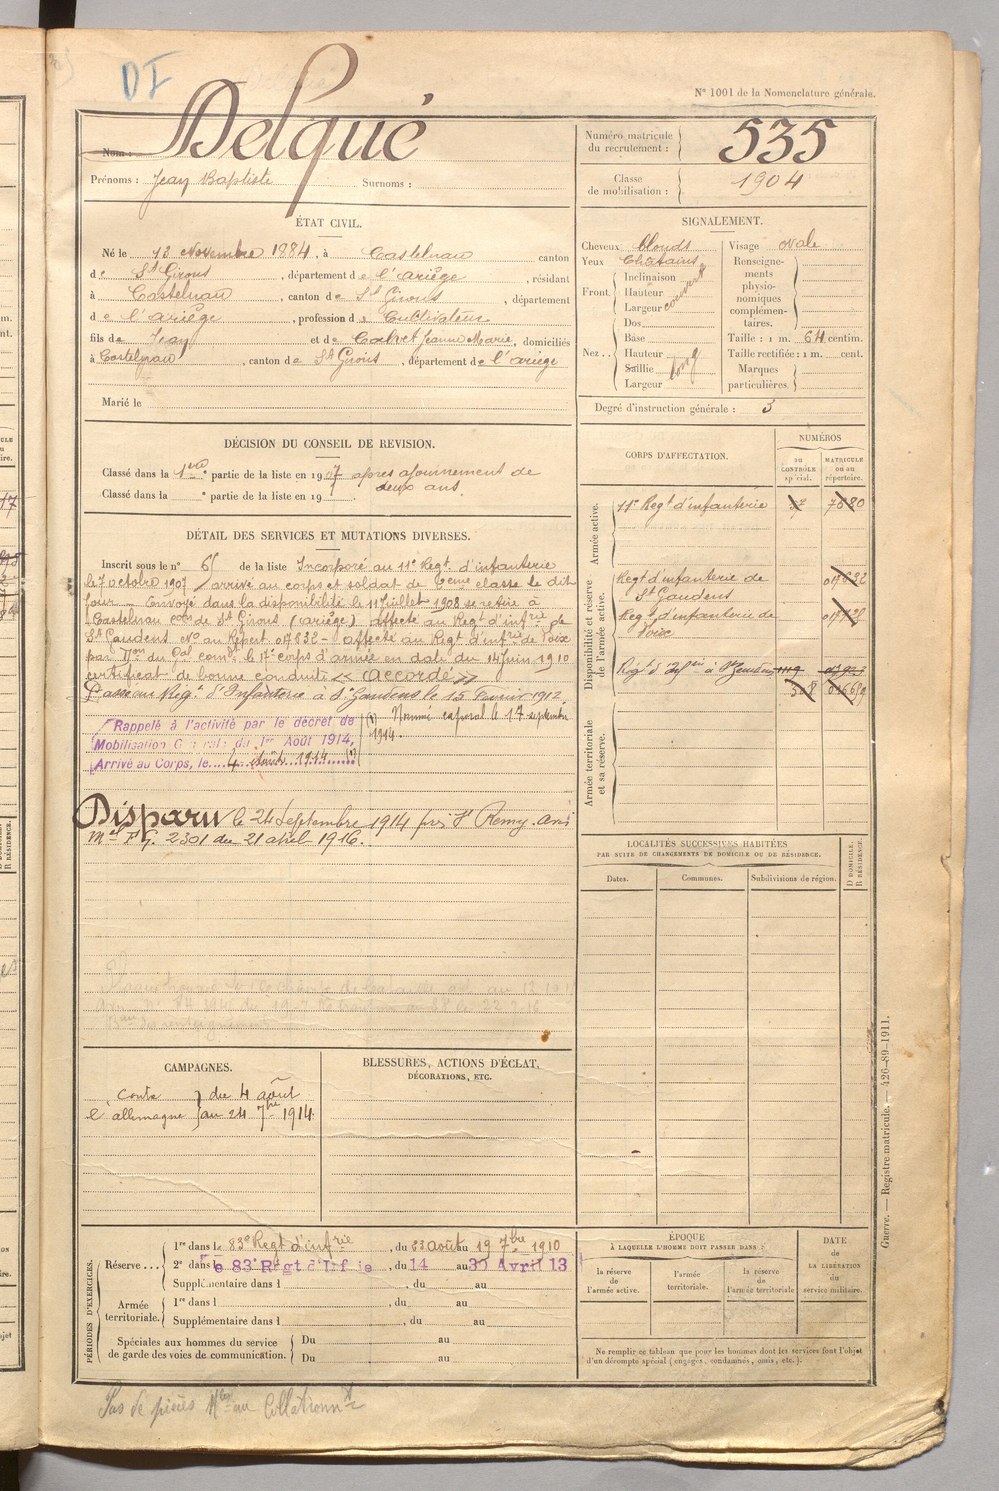 DI
N° 1001 de la Nomenclature générale.
Nom : Delqué
Prénoms : Jean Baptiste Surnoms :
Numéro matricule du recrutement : 535
Classe de mobilisation : 1904
ÉTAT CIVIL.
Né le 13 Novembre 1884, à Castelnau canton
de St Girons, département de l'ariège, résidant
à Castelnau, canton de St Girons, département
de l'ariège, profession de Cultivateur
fils de Jean et de Calvet Jeanne Marie, domiciliés
à Castelnau, canton de St Girons, département de l'ariège
Marié le
SIGNALEMENT.
Cheveux blonds
Yeux Chatains
Front. Inclinaison
Hauteur
Largeur couvert
Nez . . Dos
Base
Hauteur
Saillie long
Largeur
Visage ovale
Renseignements physionomiques complémentaires.
Taille : 1 m. 64 centim.
Taille rectifiée : 1 m. cent.
Marques particulières.
Degré d'instruction générale : 3
DÉCISION DU CONSEIL DE REVISION.
Classé dans la 1ère partie de la liste en 1907 après ajournement de
deux ans.
Classé dans la e partie de la liste en 19 .
DÉTAIL DES SERVICES ET MUTATIONS DIVERSES.
Inscrit sous le n° 65 de la liste Incorporé au 11e Regt. d'infanterie
le 7 octobre 1907, arrivé au corps et soldat de 2eme classe le dit
jour – Envoyé dans la disponibilité le 11 Juillet 1908 se retire à
Castelnau con de St Girons (ariège) affecté au Regt d'infrie de
St Gaudens No au Répert 017832 – affecté au Regt d'infrie de Foix
par Don du Gal comt le 17e corps d'armée en date du 14 Juin 1910
certificat de bonne conduite « accordé »
Passé au Regt d'Infanterie à St Gaudens le 15 Fevrier 1912
Rappelé à l'activité par le décret de
Mobilisation Générale du 1er Août 1914,
Arrivé au Corps, le 4 Août 1914 (1)
(1) Nommé caporal le 17 septembre
1914.
Disparu le 24 Septembre 1914 près St Remy. Avis
Mel F G. 2301 du 21 avril 1916.
CORPS D'AFFECTATION.
NUMÉROS
AU CONTRÔLE spécial.
MATRICULE ou au répertoire.
Armée active.
11e Regt d'infanterie 7680
Disponibilité et réserve de l'armée active.
Regt d'infanterie de
St Gaudens
Regt d'infanterie de
Foix
Regt d'Infie à St Gaudens 1119
508
Armée territoriale et sa réserve.
LOCALITÉS SUCCESSIVES HABITÉES
PAR SUITE DE CHANGEMENTS DE DOMICILE OU DE RÉSIDENCE.
Dates. Communes. Subdivisions de région. D DOMICILE. R RÉSIDENCE.
CAMPAGNES.
contre l'allemagne } du 4 août
au 24 7bre 1914.
BLESSURES, ACTIONS D'ÉCLAT,
DÉCORATIONS, ETC.
PÉRIODES D'EXERCICES.
Réserve . . . 1re dans le 83e Regt d'infrie, du 23 août au 19 7bre 1910
2e dans le 83e Régt d'Infie, du 14 au 30 Avril 13
Supplémentaire dans l , du au
Armée territoriale. 1re dans l , du au
Supplémentaire dans l , du au
Spéciales aux hommes du service
de garde des voies de communication. Du au
Du au
ÉPOQUE
À LAQUELLE L'HOMME DOIT PASSER DANS :
la réserve de l'armée active.
l'armée territoriale.
la réserve de l'armée territoriale
DATE
DE
LA LIBÉRATION
du
service militaire.
Ne remplir ce tableau que pour les hommes dont les services font l'objet
d'un décompte spécial (engagés, condamnés, omis, etc.).
Guerre. — Registre matricule. — 426-89-1911.
Pas de pièces Mles au Collationnt